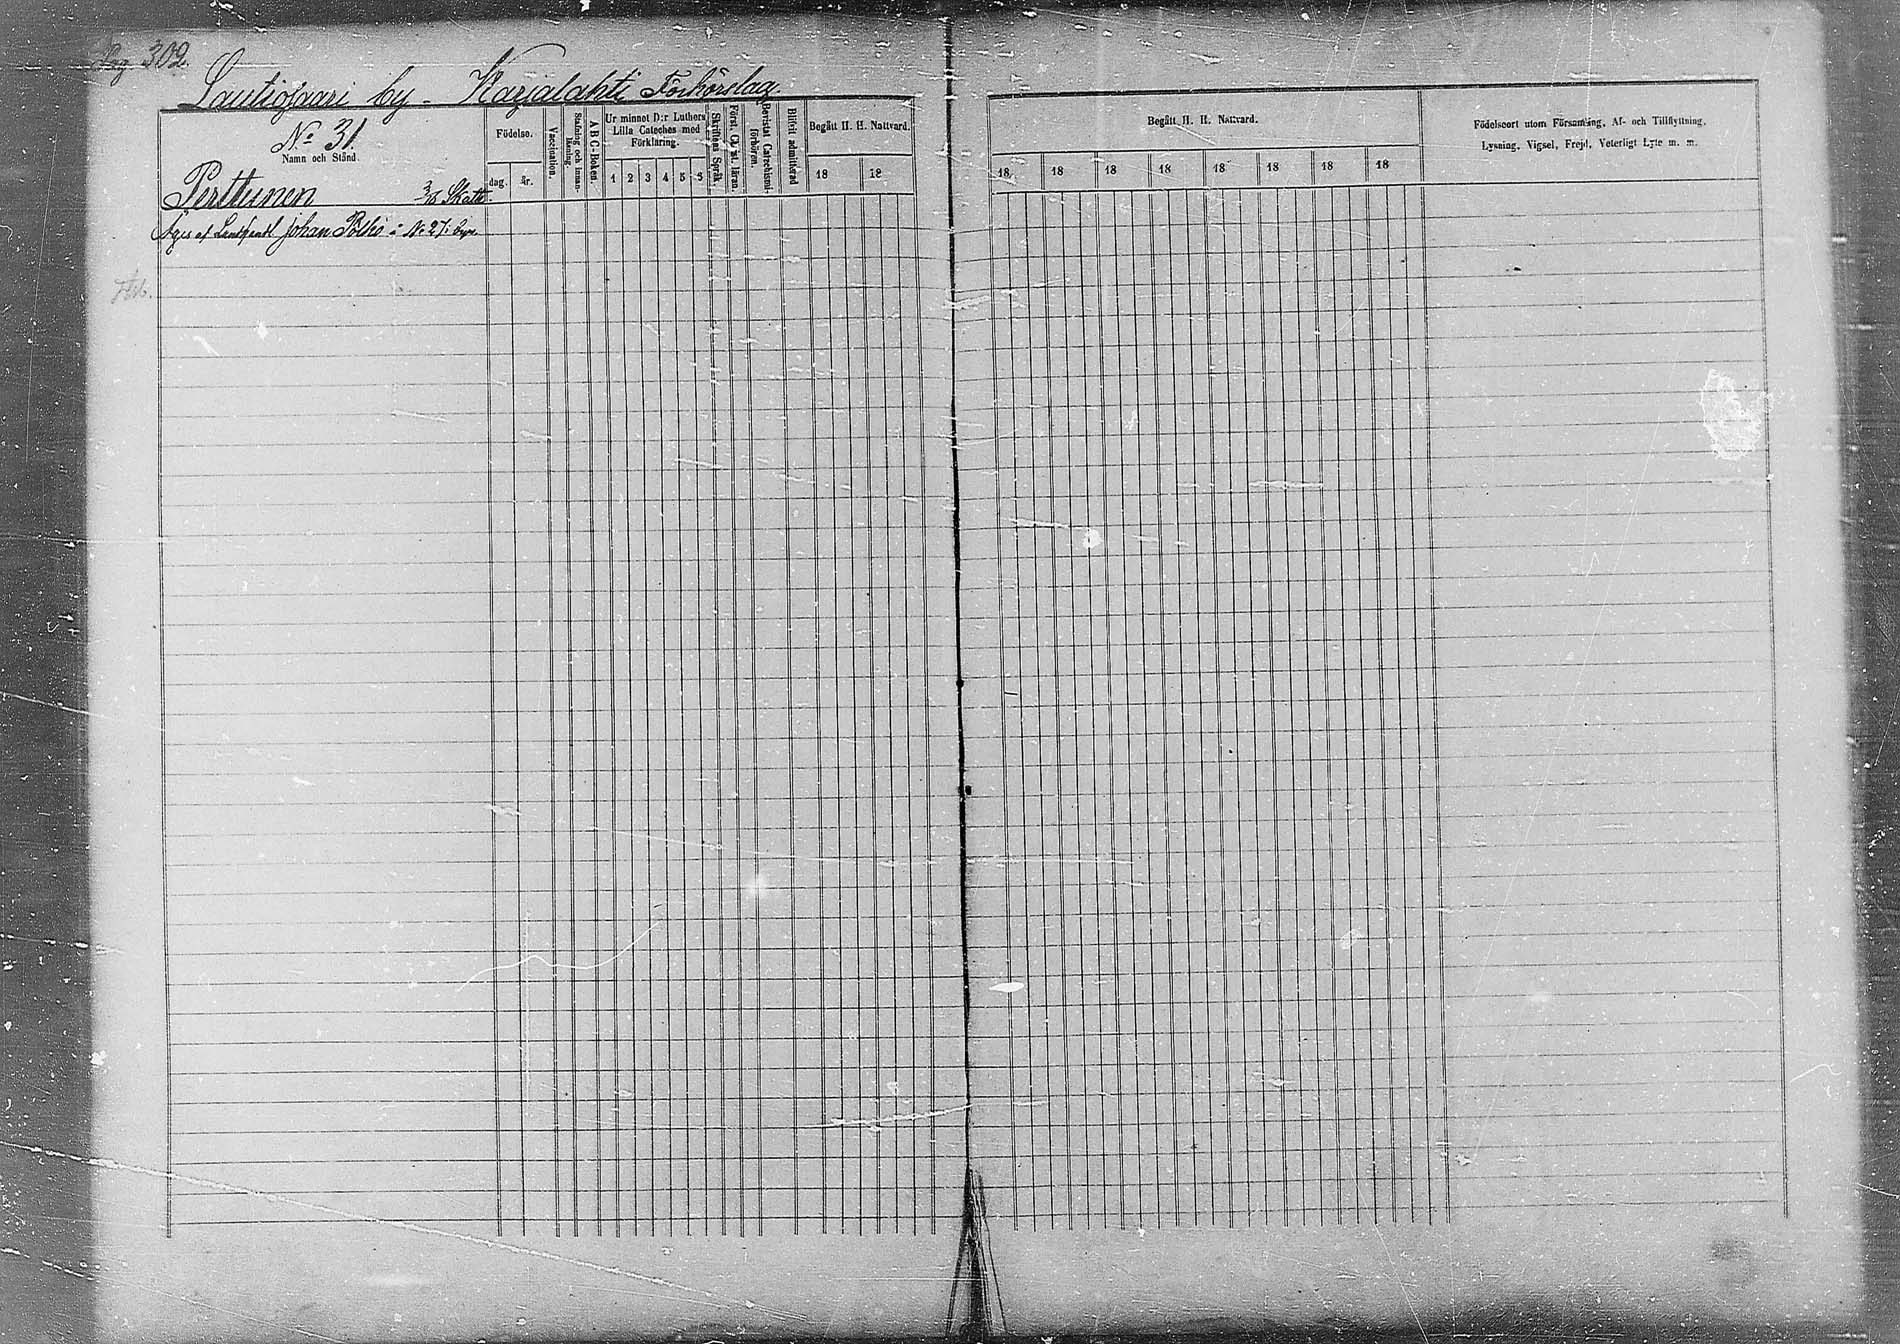 Pag 302.
Lautiosaari by - Karjalahti Förhörslag
No 31.
Namn och Stånd
Perttunen 3/8 Skatte.
Äges af Landbond. Johan Pôlho å No 27 i byn.
Födelse.
dag. år.
Vaccination.
Stafning och Innan-
läsning.
A B C-Boken.
Ur minnet D:r Luthers
Lilla Cateches med
Förklaring.
1 2 3 4 5 S
Skriftens Språk.
Först. Christ. läran.
Bevistat Catechismi
förhören.
Blifvit admitterad
Begått H. H. Nattvard.
18 18
Begått H. H. Nattvard.
18 18 18 18 18 18 18 18
Födelseort utom Församling, Af- och Tillflyttning,
Lysning, Vigsel, Frejd, Veterligt Lyte m. m.